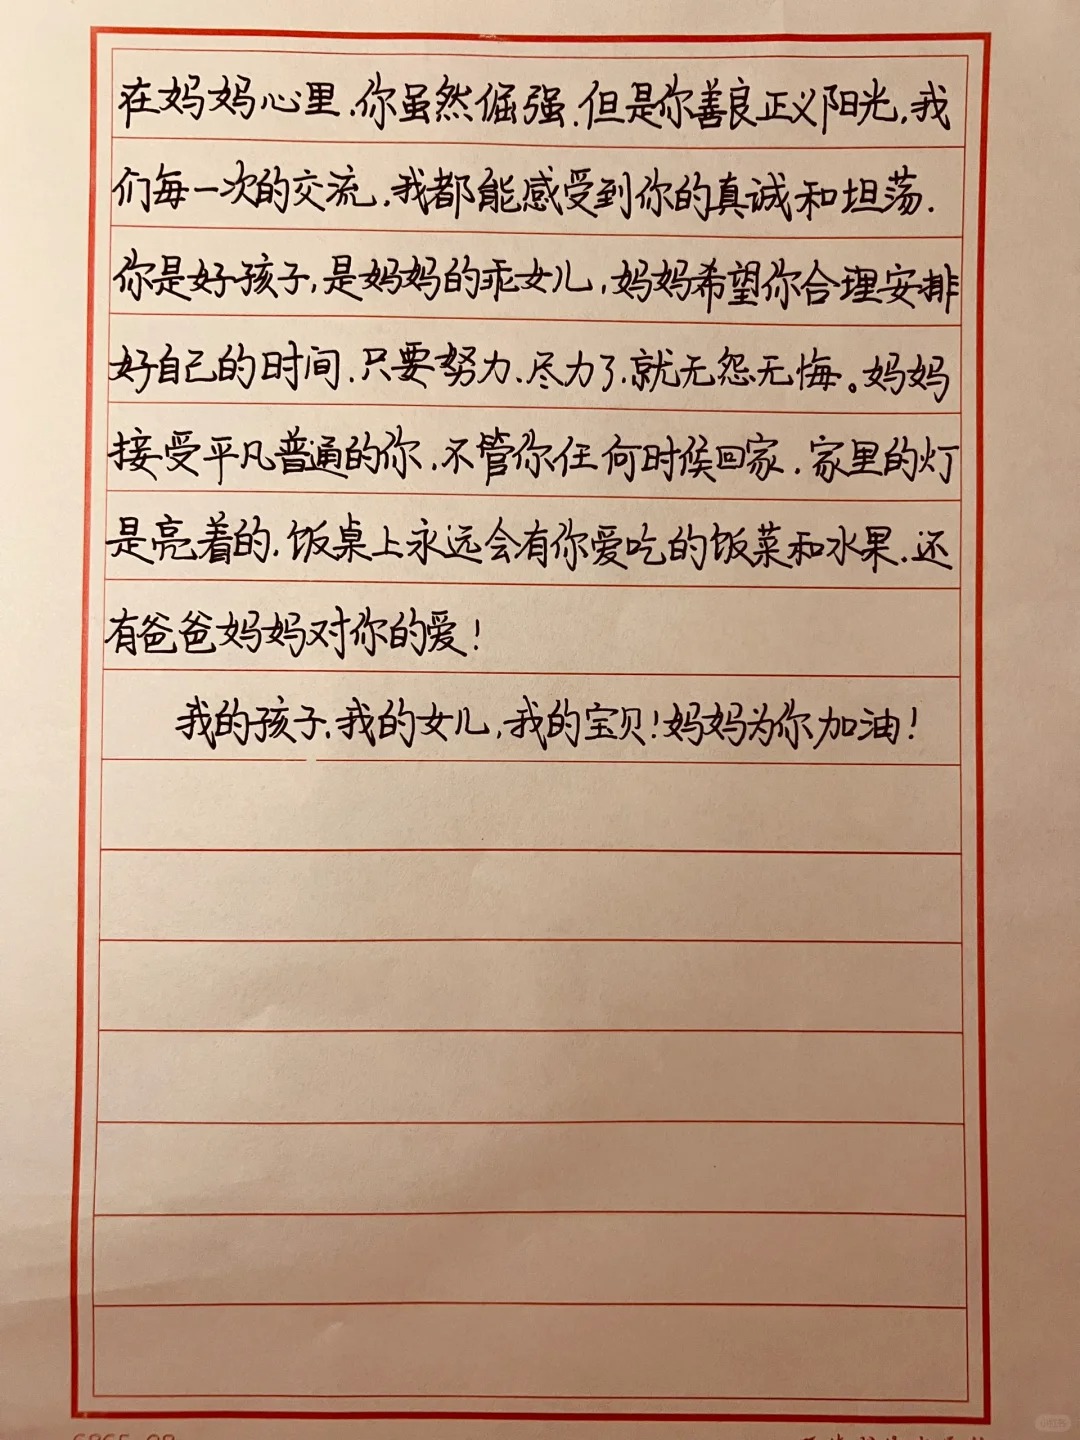 在妈妈心里.你虽然倔强.但是你善良正义阳光,我
们每一次的交流.我都能感受到你的真诚和坦荡.
你是好孩子,是妈妈的乖女儿,妈妈希望你合理安排
好自己的时间.只要努力、尽力了.就无怨无悔。妈妈
接受平凡普通的你.不管你任何时候回家.家里的灯
是亮着的.饭桌上永远会有你爱吃的饭菜和水果.还
有爸爸妈妈对你的爱!
我的孩子.我的女儿,我的宝贝!妈妈为你加油!
小红书